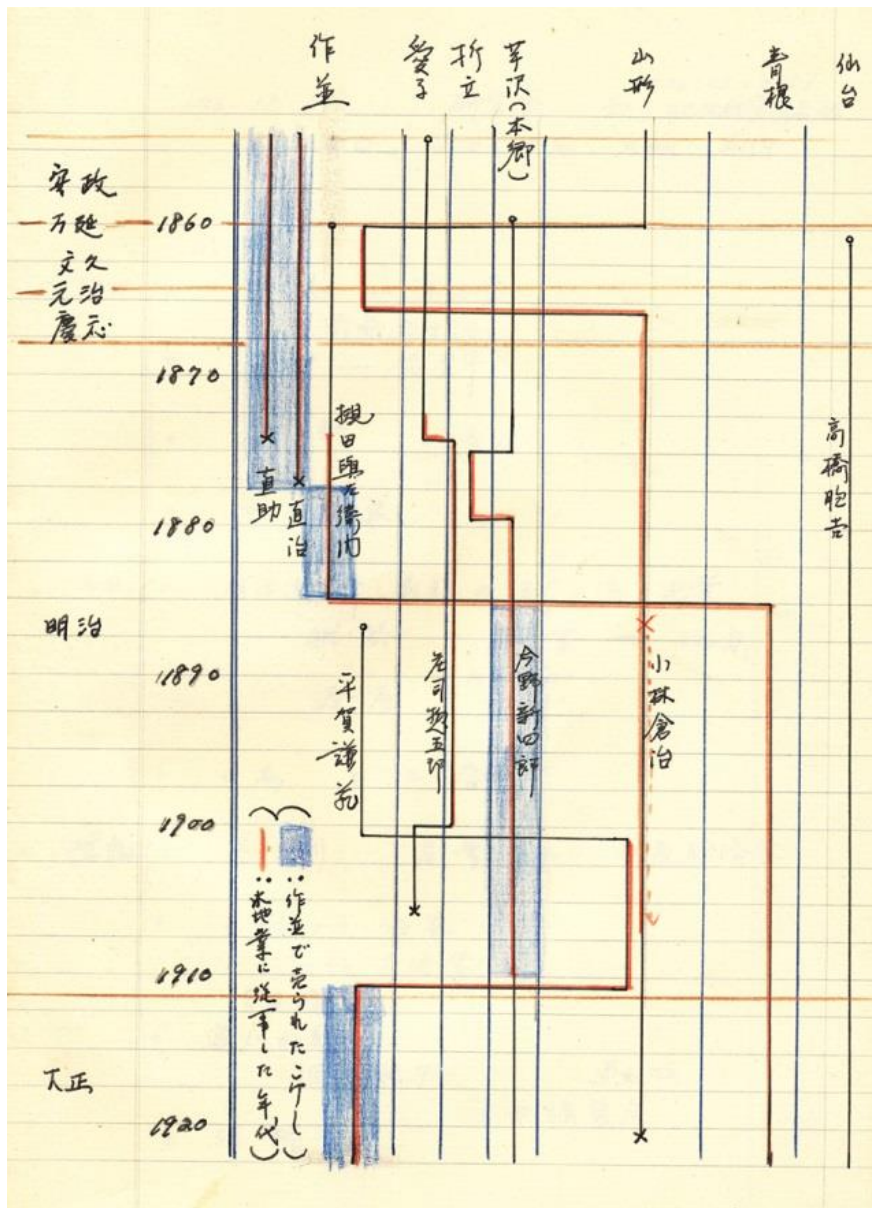 作並
愛子
折立
芋沢(本郷)
山形
青根
仙台
安政
万延
文久
元治
慶応
明治
大正
1860
1870
1880
1890
1900
1910
1920
直助
直治
槻田与左衛門
平賀謙蔵
庄司惣五郎
今野新四郎
小林倉治
高橋胞吉
(:作並で売られたこけし)
(:木地業に従事した年代)